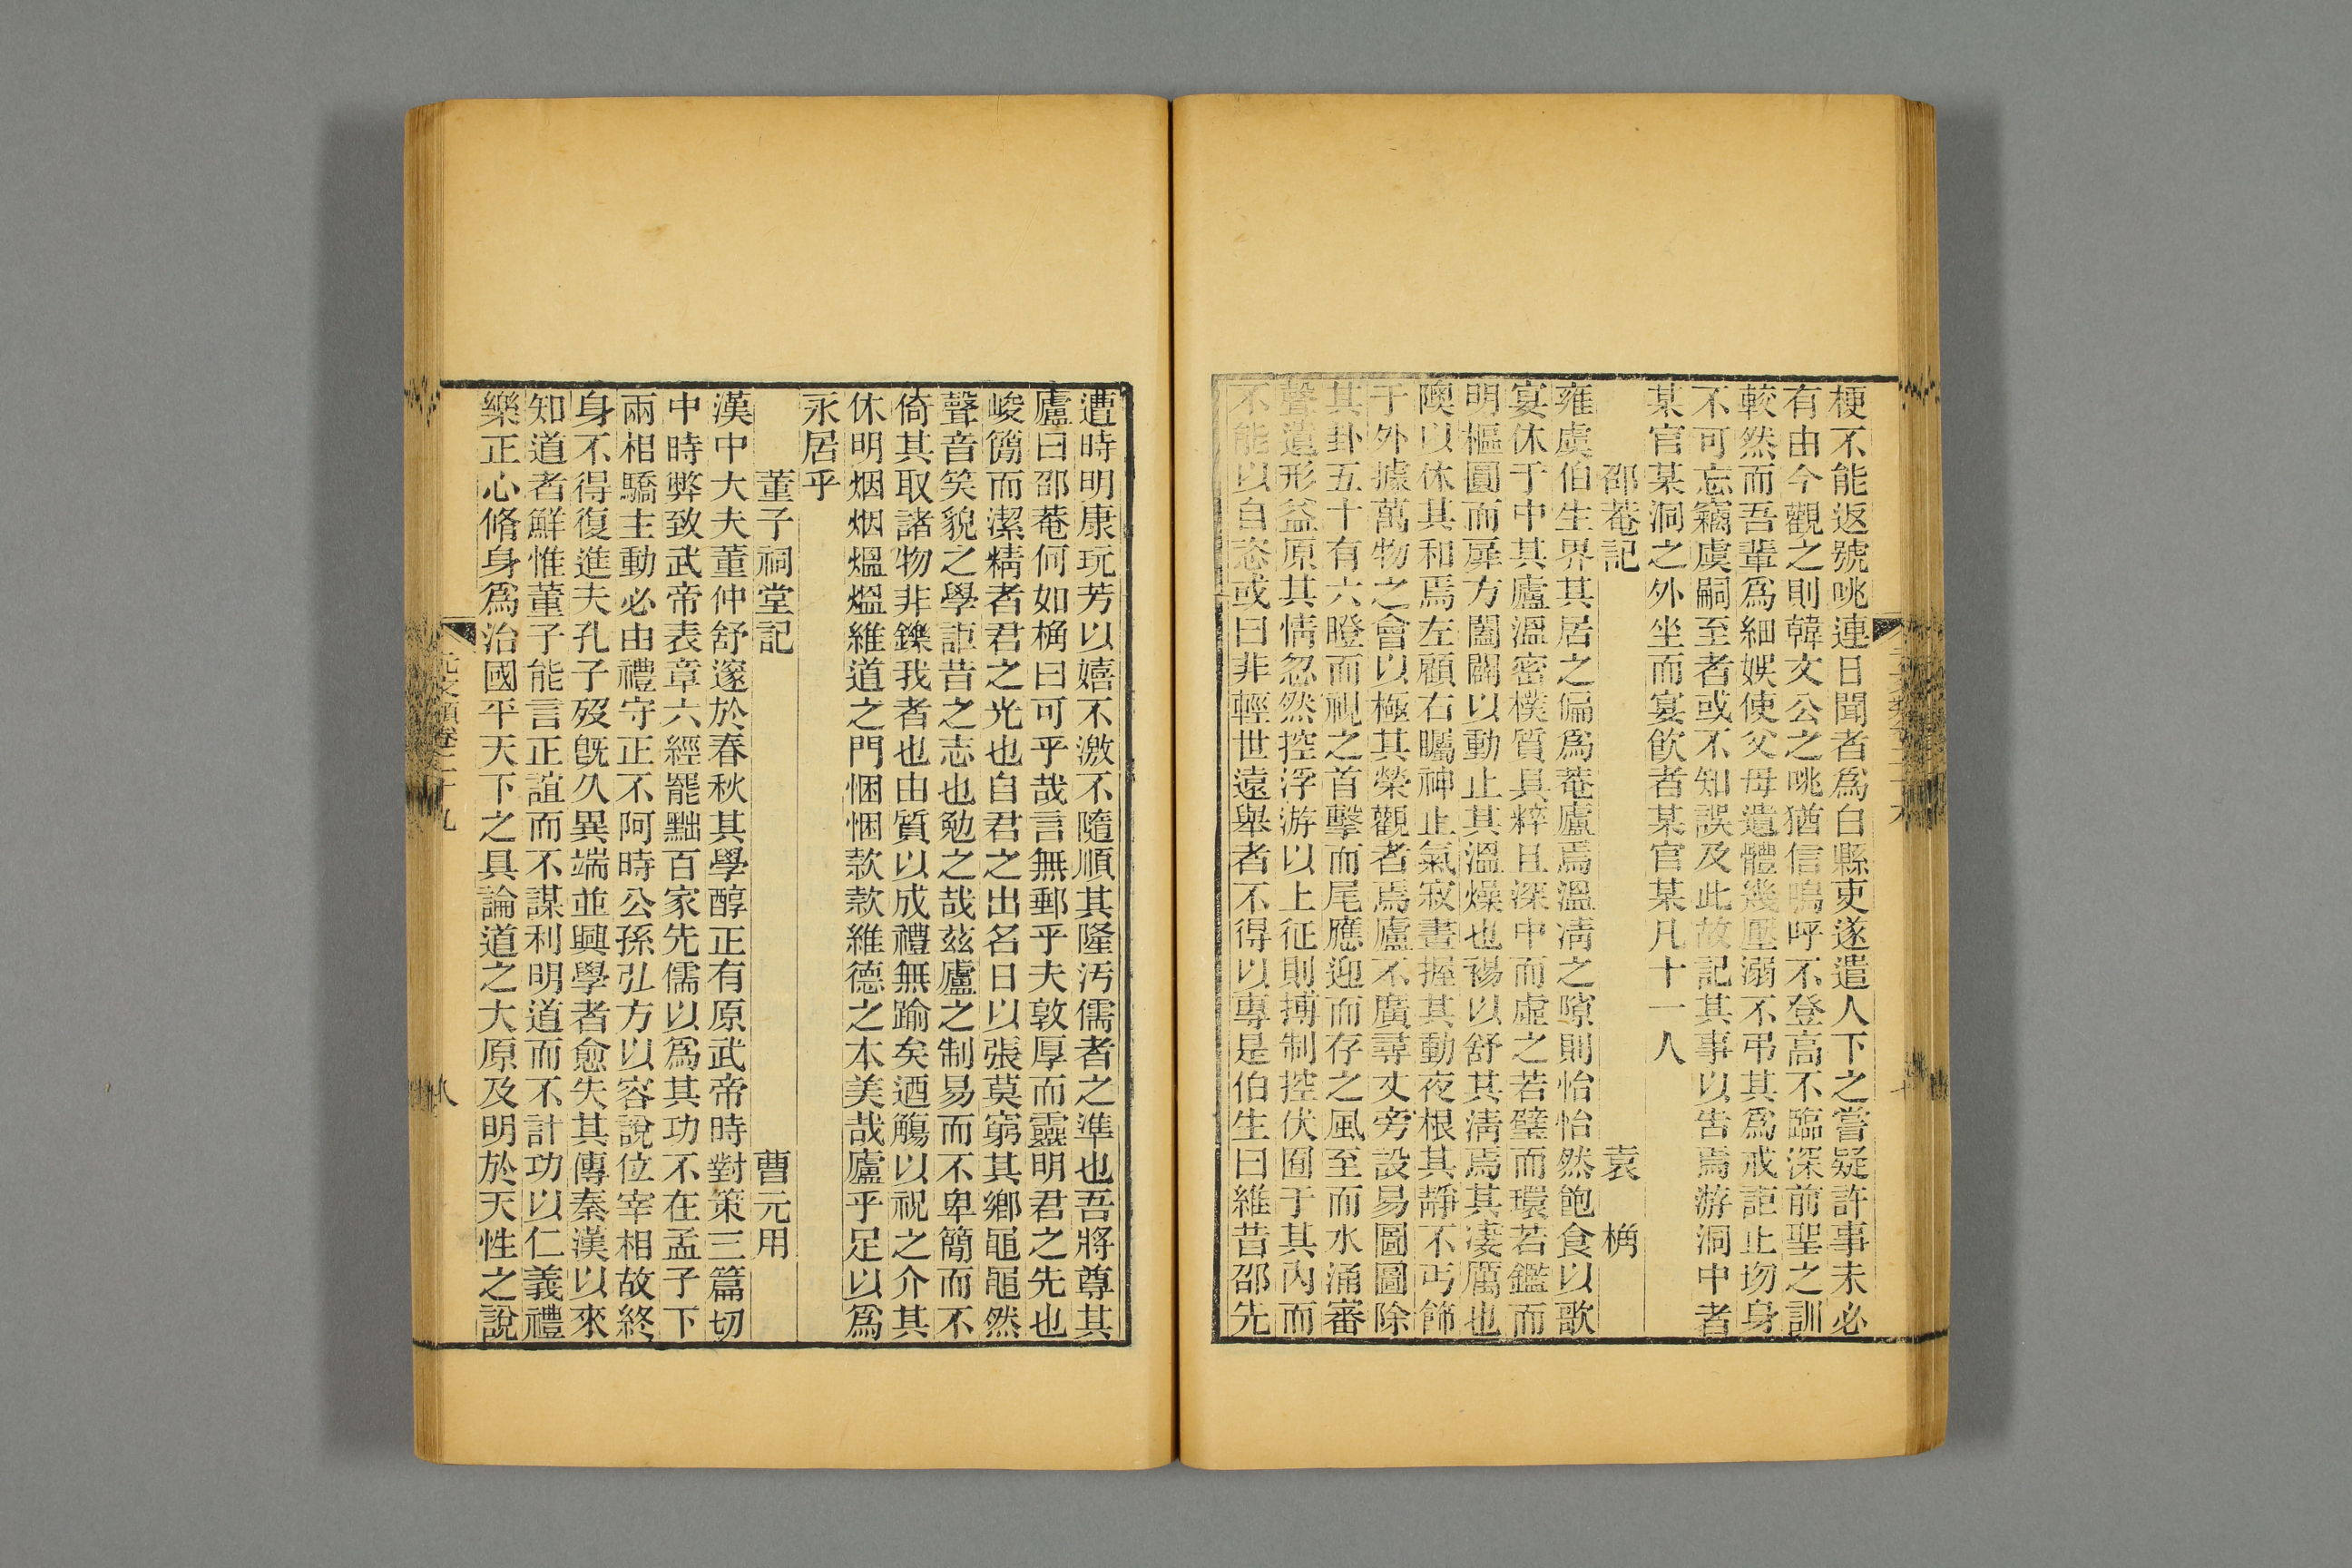 梗不能返號咷連日聞者爲白縣吏遂遣人下之嘗疑許事未必
有由今觀之則韓文公之咷猶信嗚呼不登高不臨深前聖之訓
較然而吾輩爲細娛使父母遺體幾壓溺不弔其爲戒詎止切身
不可忘竊虞嗣至者或不知誤及此故記其事以告焉游洞中者
某官某洞之外坐而宴飲者某官某凡十一人
邵菴記 袁桷
雍虞伯生界其居之偏爲菴廬焉溫凊之隙則怡怡然飽食以歌
宴休于中其廬溫密樸質具粹且深中而虛之若璧而環若鑑而
明樞圓而扉方闔闢以動止其溫燠也裼以舒其清焉其凄厲也
隩以休其和焉左顧右矚神止氣寂晝握其動夜根其靜不丐飾
于外據萬物之會以極其榮觀者焉廬不廣尋丈旁設易圖圖除
其卦五十有六瞪而視之首擊而尾應迎而存之風至而水涌審
聲遺形益原其情忽然控浮游以上征則搏制控伏囿于其內而
不能以自恣或曰非輕世遠舉者不得以專是伯生曰維昔邵先
遭時明康玩芳以嬉不激不隨順其隆汚儒者之準也吾將尊其
廬曰邵菴何如桷曰可乎哉言無郵乎夫敦厚而靈明君之先也
峻飭而潔精者君之光也自君之出名日以張莫窮其鄉黽黽然
聲音笑貌之學詎昔之志也勉之哉茲廬之制易而不卑簡而不
倚其取諸物非鑠我者也由質以成禮無踰矣迺觴以祝之介其
休明烟烟熅熅維道之門悃悃款款維德之本美哉廬乎足以爲
永居乎
董子祠堂記 曹元用
漢中大夫董仲舒邃於春秋其學醇正有原武帝時對策三篇切
中時弊致武帝表章六經罷黜百家先儒以爲其功不在孟子下
兩相驕主動必由禮守正不阿時公孫弘方以容說位宰相故終
身不得復進夫孔子歿旣久異端並興學者愈失其傳秦漢以來
知道者鮮惟董子能言正誼而不謀利明道而不計功以仁義禮
樂正心脩身爲治國平天下之具論道之大原及明於天性之說
元文類卷二十九 八